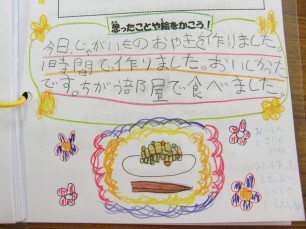 思ったことや絵をかこう！
今日、じゃがいものおやきを作りました。
1時間で作りました。おいしかった
です。ちがう部屋で食べました。